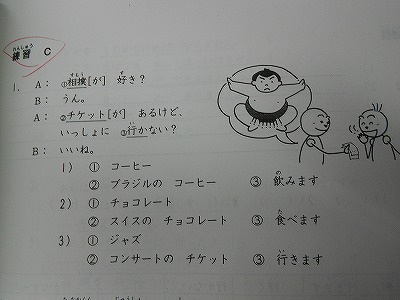 練習 C
1. A： ①相撲[が] 好き？
B： うん。
A： ②チケット[が] あるけど、
いっしょに ③行かない？
B： いいね。
1) ① コーヒー
② ブラジルの コーヒー ③ 飲みます
2) ① チョコレート
② スイスの チョコレート ③ 食べます
3) ① ジャズ
② コンサートの チケット ③ 行きます